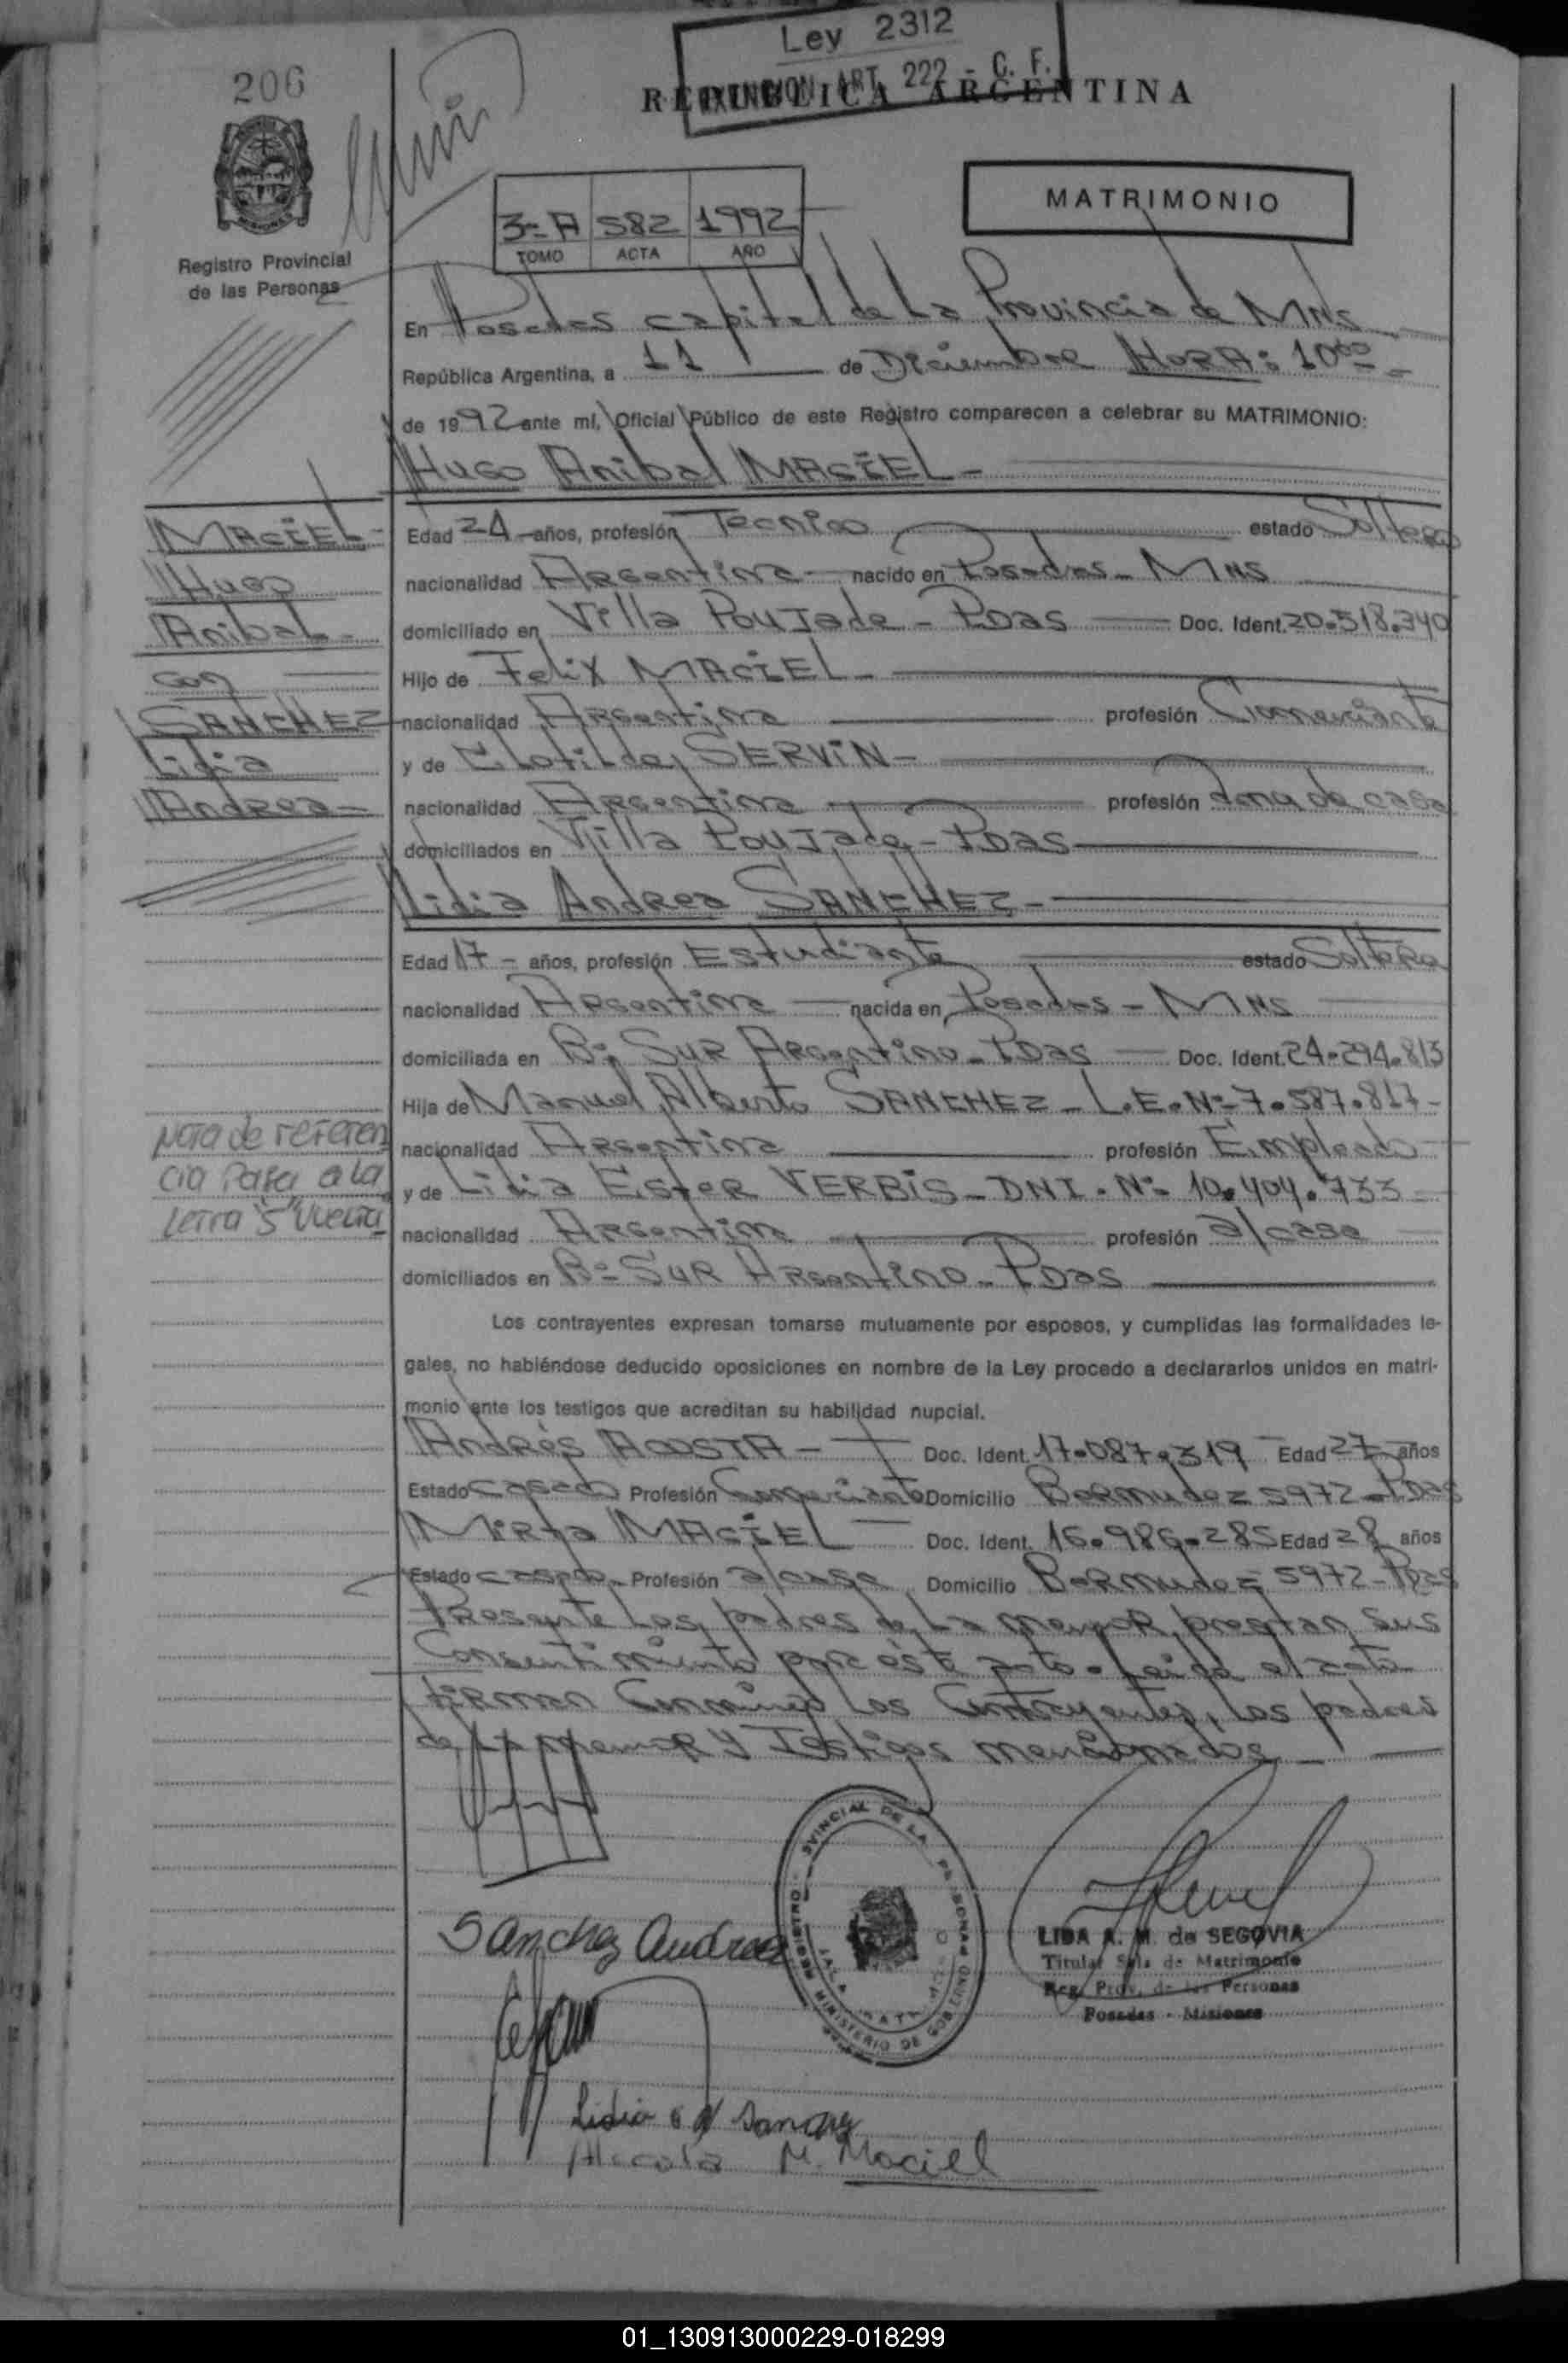 206
Ley 2312
EXENCION ART. 222 - C. F.
REPUBLICA ARGENTINA
MATRIMONIO
3º A 582 1992
TOMO ACTA AÑO
Registro Provincial
de las Personas
En Posadas capital de La Provincia de MNS
República Argentina, a 11 de Diciembre HORA: 10⁰⁰ -
de 1992 ante mí, Oficial Público de este Registro comparecen a celebrar su MATRIMONIO:
Hugo Anibal MACIEL -
MACIEL -
Hugo
Anibal -
con
SANCHEZ
Lidia
Andrea -
Edad 24 - años, profesión Tecnico estado Soltero
nacionalidad Argentina nacido en Posadas - MNS
domiciliado en Villa Poujade - Pdas Doc. Ident. 20.518.340
Hijo de Felix MACIEL -
nacionalidad Argentina profesión Comerciante
y de Clotilde SERVIN -
nacionalidad Argentina profesión ama de casa
domiciliados en Villa Poujade - Pdas
Lidia Andrea SANCHEZ -
Edad 17 - años, profesión Estudiante estado Soltera
nacionalidad Argentina nacida en Posadas - MNS
domiciliada en Bº Sur Argentino - Pdas Doc. Ident. 24.294.813
Hija de Manuel Alberto SANCHEZ - L.E. Nº 7.587.817 -
nacionalidad Argentina profesión Empleado
y de Lidia Ester VERBIS - DNI. Nº 10.404.733
nacionalidad Argentina profesión a/casa
domiciliados en Bº Sur Argentino - Pdas
Nota de referen
cia Pasa a la
Letra "S" Vuelta
Los contrayentes expresan tomarse mutuamente por esposos, y cumplidas las formalidades le-
gales, no habiéndose deducido oposiciones en nombre de la Ley procedo a declararlos unidos en matri-
monio ante los testigos que acreditan su habilidad nupcial.
Andrés ACOSTA - Doc. Ident. 17.087.319 Edad 27 años
Estado casado Profesión Comerciante Domicilio Bermudez 5972 - Pdas
Mirta MACIEL Doc. Ident. 16.986.285 Edad 28 años
Estado casada Profesión a/casa Domicilio Bermudez 5972 - Pdas
Presente Los padres de La menor, prestan sus
Consentimiento para éste acto. Leida el acta
firman Conmigo Los Contrayentes, Los padres
de La menor y Testigos mencionados
Sanchez Andrea
REGISTRO PROVINCIAL DE LA PERSONAS
MINISTERIO DE GOBIERNO
LIDA A. M. de SEGOVIA
Titular Sala de Matrimonio
Reg. Prov. de las Personas
Posadas - Misiones
Lidia
M. Maciel
01_130913000229-018299